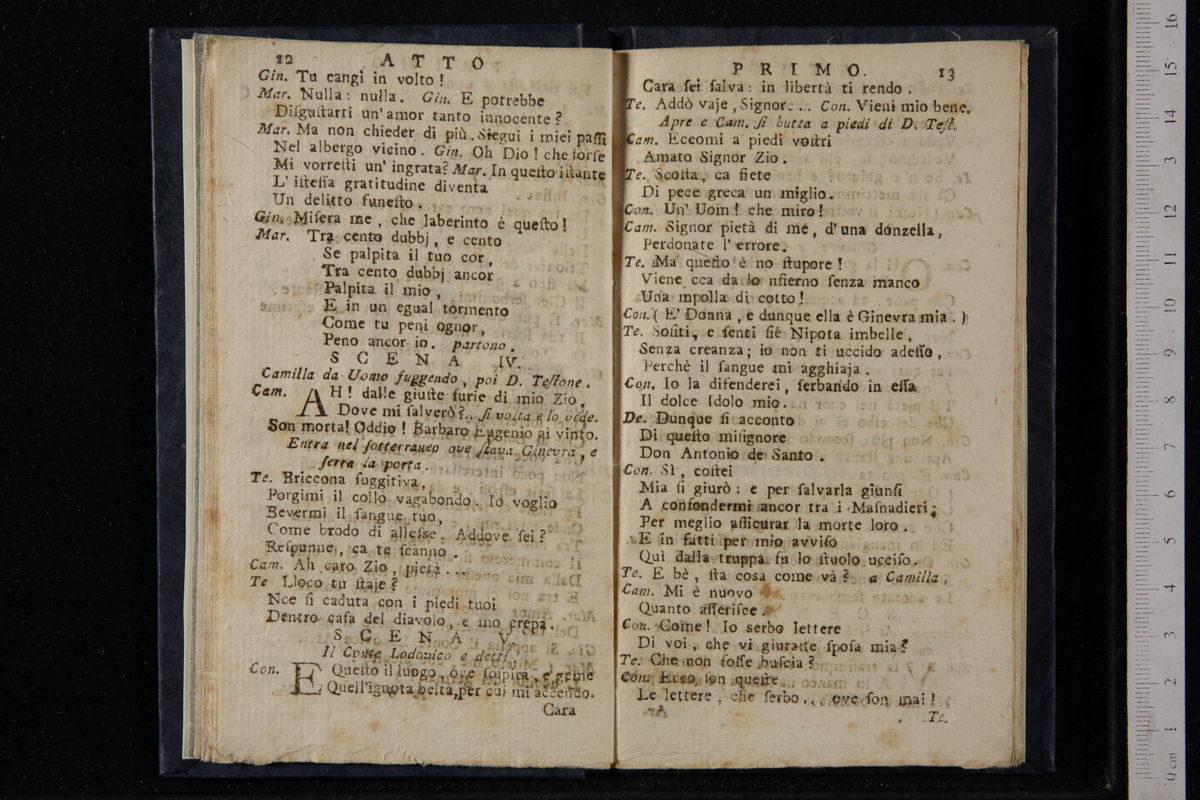 12 ATTO
Gin. Tu cangi in volto!
Mar. Nulla: nulla. Gin. E potrebbe
Diſguſtarti un'amor tanto innocente?
Mar. Ma non chieder di più. Siegui i miei paſſi
Nel albergo vicino. Gin. Oh Dio! che forſe
Mi vorreſti un'ingrata? Mar. In queſto iſtante
L'iſteſſa gratitudine diventa
Un delitto funeſto.
Gin. Miſera me, che laberinto è queſto!
Mar. Tra cento dubbj, e cento
Se palpita il tuo cor,
Tra cento dubbj ancor
Palpita il mio,
E in un egual tormento
Come tu peni ognor,
Peno ancor io. partono.
SCENA IV.
Camilla da Uomo fuggendo, poi D. Teſtone.
Cam. AH! dalle giuſte furie di mio Zio,
Dove mi ſalverò?.. ſi volta e lo vede.
Son morta! Oddio! Barbaro Eugenio ai vinto.
Entra nel ſotterraneo ove ſtava Ginevra, e
ſerra la porta.
Te. Briccona fuggitiva,
Porgimi il collo vagabondo. Io voglio
Bevermi il ſangue tuo,
Come brodo di alleſſe. Addove ſei?
Reſpunne, ca te ſcanno.
Cam. Ah caro Zio, pietà...
Te Lloco tu ſtaje?
Nce ſi caduta con i piedi tuoi
Dentro caſa del diavolo, e mo crepa.
SCENA V.
Il Conte Lodovico e detti.
Con. E Queſto il luogo, ove ſoſpira, e geme
Quell'ignota beltà, per cui mi accendo.
Cara
PRIMO. 13
Cara ſei ſalva: in libertà ti rendo.
Te. Addò vaje, Signor... Con. Vieni mio bene.
Apre e Cam. ſi butta a piedi di D. Teſt.
Cam. Eccomi a piedi voſtri
Amato Signor Zio.
Te. Scoſta, ca fiete
Di pece greca un miglio.
Con. Un'Uom! che miro!
Cam. Signor pietà di me, d'una donzella,
Perdonate l'errore.
Te. Ma queſto è no ſtupore!
Viene cca da lo nfierno ſenza manco
Una mpolla di cotto!
Con. (E' Donna, e dunque ella è Ginevra mia.)
Te. Soſiti, e ſenti ſiè Nipota imbelle,
Senza creanza; io non ti uccido adeſſo,
Perchè il ſangue mi agghiaja.
Con. Io la difenderei, ſerbando in eſſa
Il dolce Idolo mio.
De. Dunque ſi acconto
Di queſto miſignore
Don Antonio de Santo.
Con. Sì, coſtei
Mia ſi giurò: e per ſalvarla giunſi
A confondermi ancor tra i Maſnadieri;
Per meglio aſſicurar la morte loro.
E in fatti per mio avviſo
Quì dalla truppa fu lo ſtuolo ucciſo.
Te. E bè, ſta coſa come và? a Camilla.
Cam. Mi è nuovo
Quanto aſſeriſce.
Con. Come! Io serbo lettere
Di voi, che vi giuraſte ſpoſa mia?
Te. Che non foſſe buſcia?
Con. Ecco ſon queſte
Le lettere, che ſerbo.., ove ſon mai!
Te.